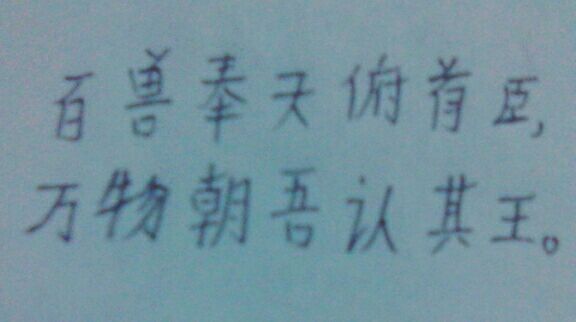 百兽奉天俯首臣,
万物朝吾认其王。